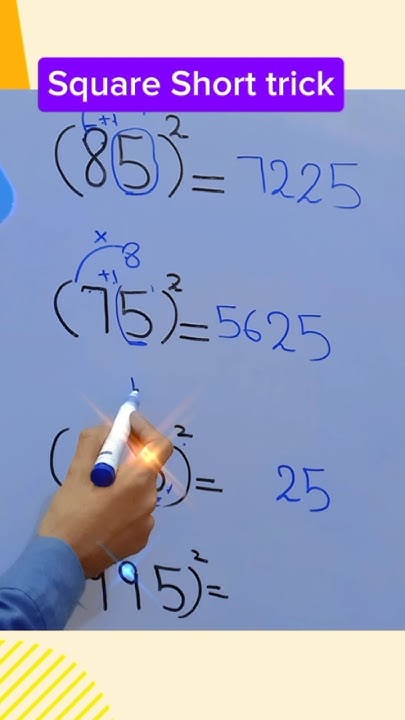 Square Short trick
+1
(85)² = 7225
× 8
+1
(75)² = 5625
( )² = 25
995)² =